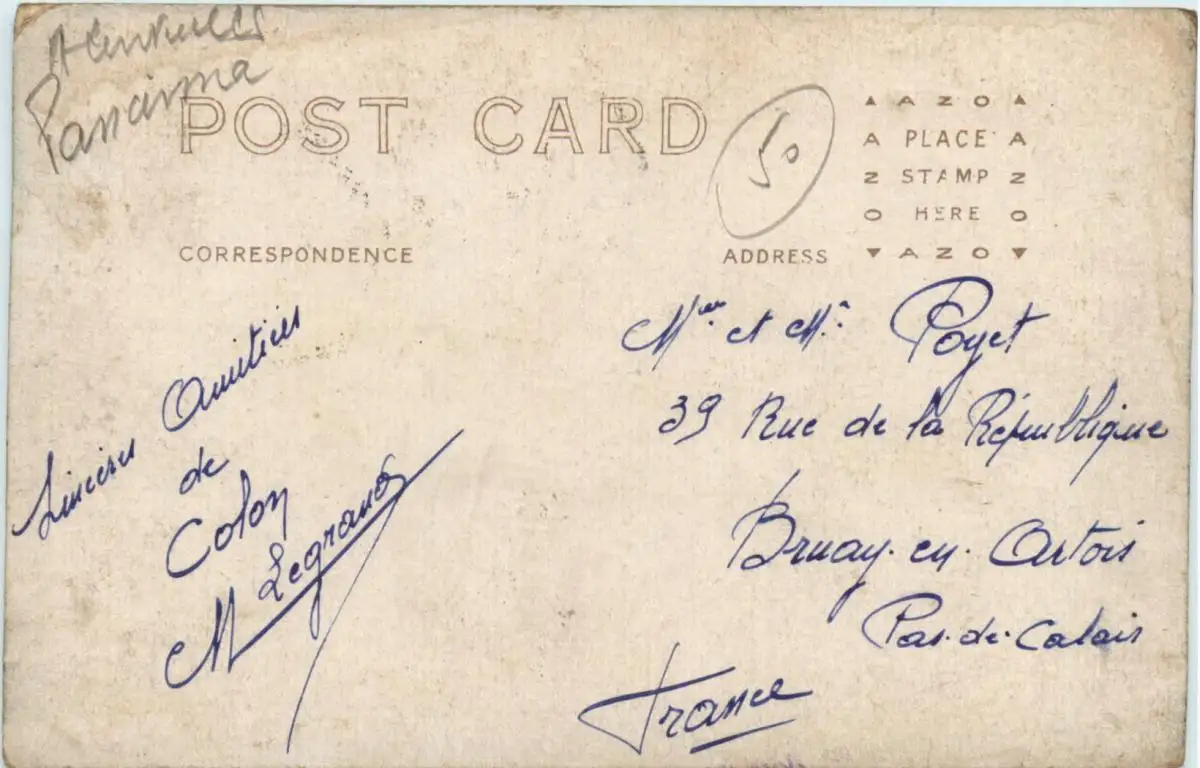 Panama
POST CARD
50
AZO
A PLACE A
Z STAMP Z
O HERE O
AZO
CORRESPONDENCE
ADDRESS
Sincères Amitiés
de
Colon
M Legrand
Mme. et Mr. Poyet
39 Rue de la République
Bruay. en. Artois
Pas-de-Calais
France